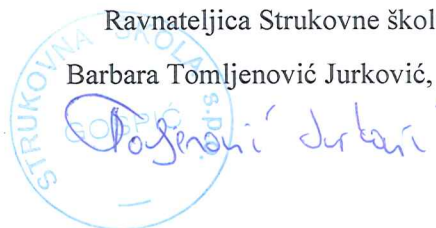 Ravnateljica Strukovne škol
Barbara Tomljenović Jurković,
STRUKOVNA ŠKOLA
GOSPIĆ
Tomljenović Jurković